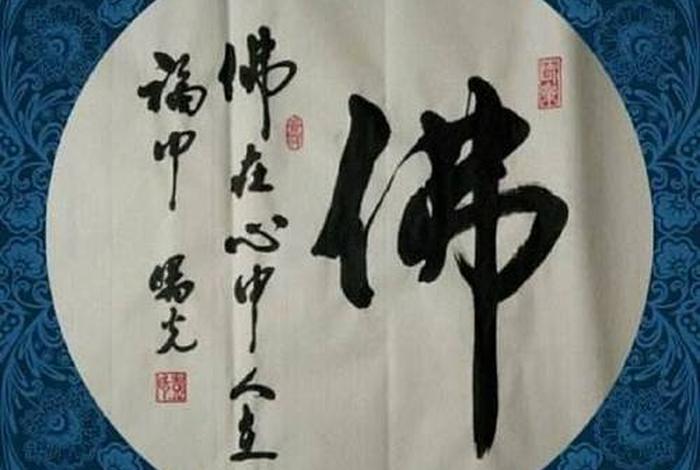 佛
佛在心中人在
福中 陽光